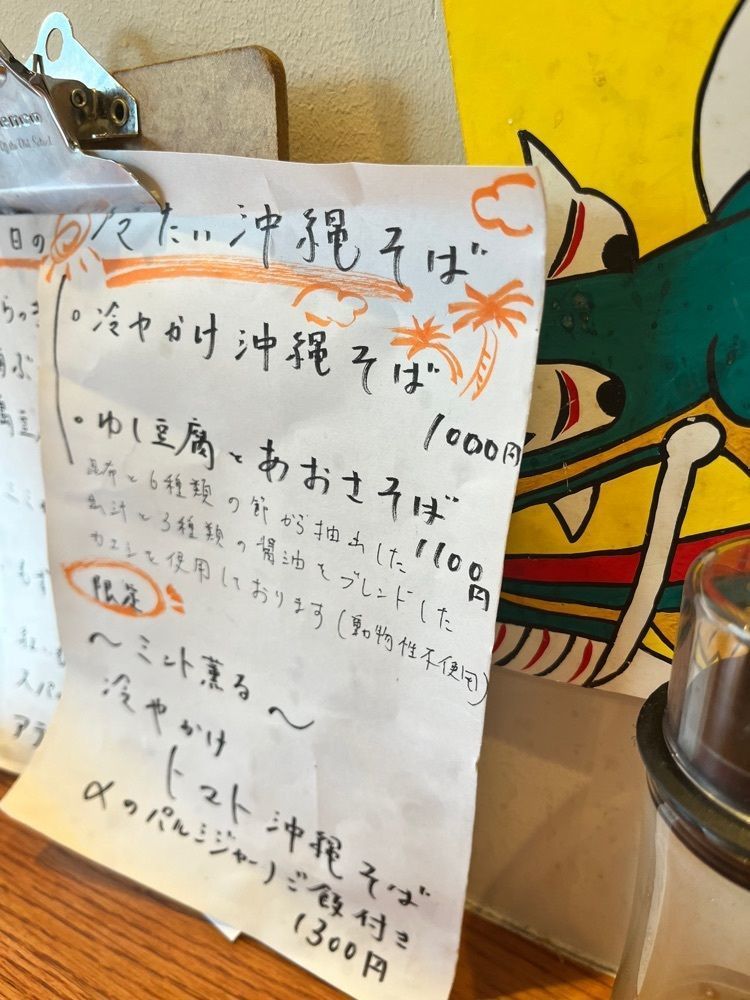 冷たい沖縄そば
。冷やかけ沖縄そば
1000円
。ゆし豆腐とあおさそば
1100円
昆布と6種類の節から抽出した
出汁と3種類の醤油をブレンドした
カエシを使用しております(動物性不使用)
限定
〜ミント薫る〜
冷やかけ
トマト沖縄そば
αのパルミジャーノご飯付き
1300円
日の